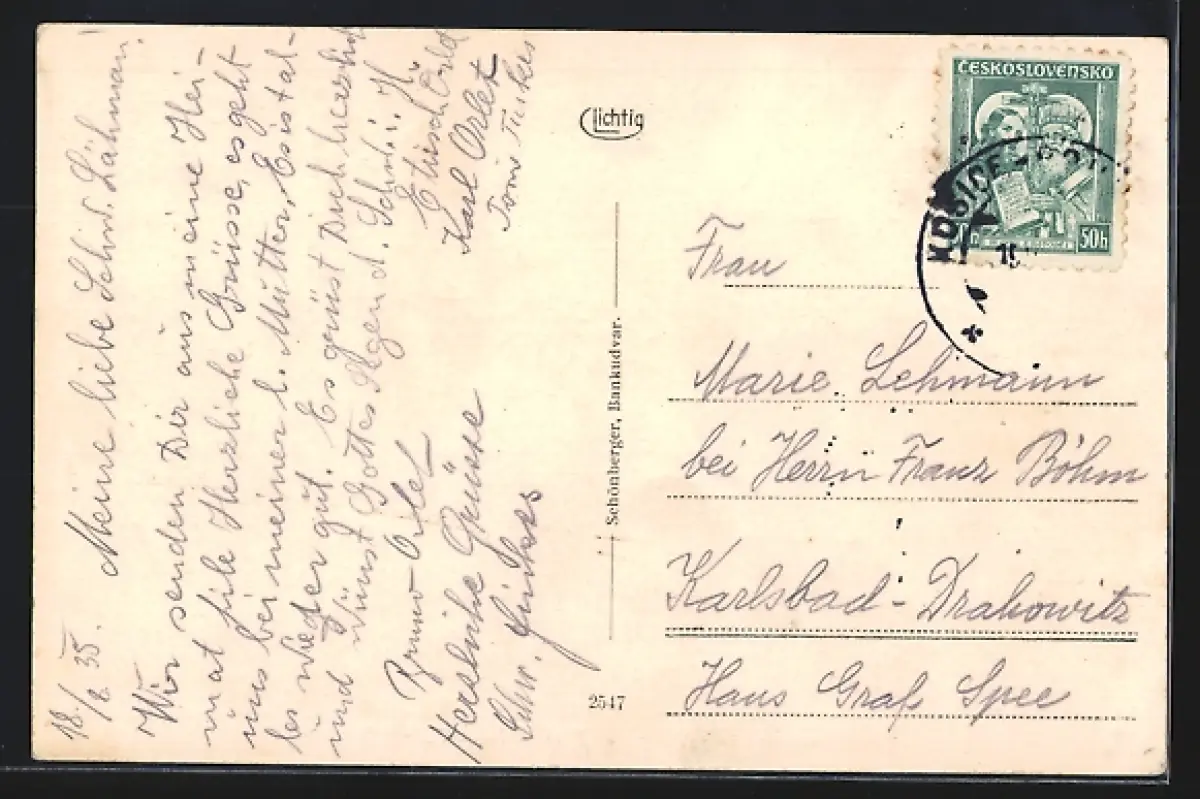 18./8. 35.
Meine liebe Schw. Lähman.
Wir senden Dir aus meine Hei-
mat file Herzliche Grüsse, es geht
uns bei meiner l. Mutter, Es ist al-
les wieder gut. Es grüst Dich herzlich
und wünst Gottes Segen d. Schw. i. H.
Bruno Orlet
Karl Orlet
Herzliche Grüsse
Schw.
Lichtig
Schönberger, Bankudvar.
2547
ČESKOSLOVENSKO
50h
KOŠICE
Frau
Marie Lehmann
bei Herrn Franz Böhm
Karlsbad - Drahowitz
Haus Graf Spee